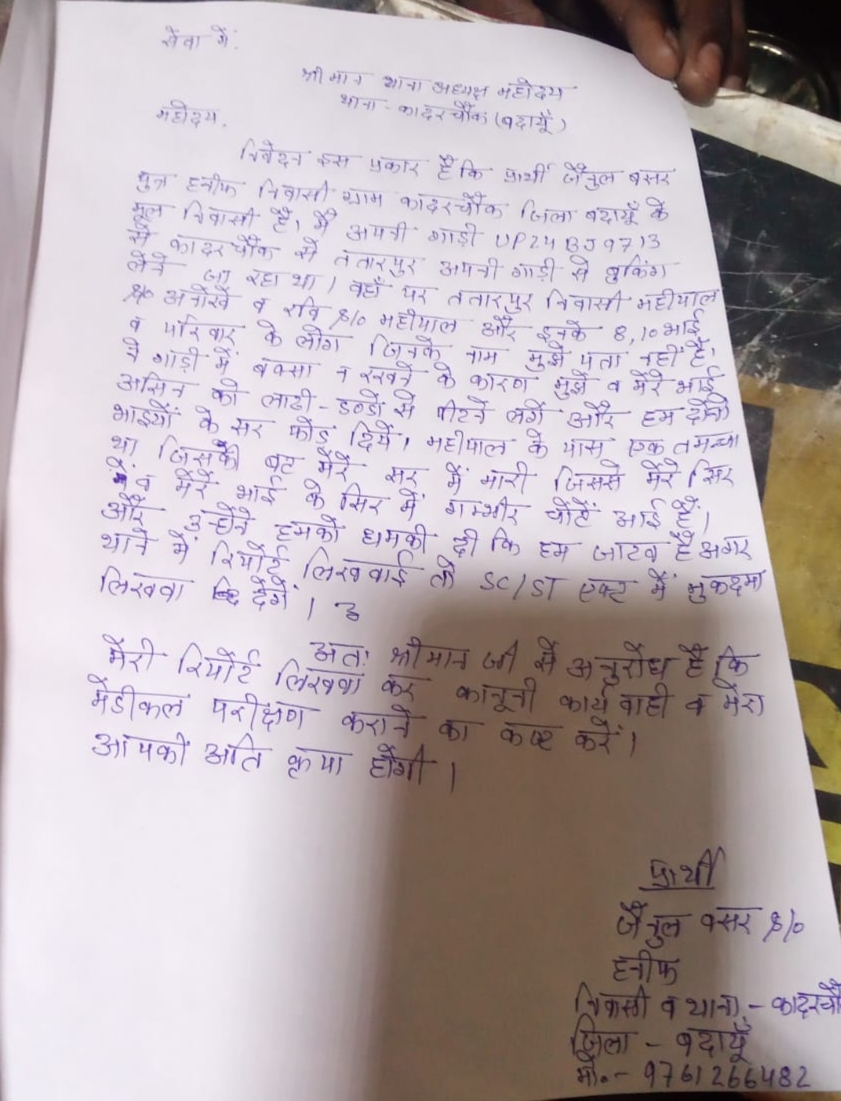 सेवा में,
श्रीमान थाना अध्यक्ष महोदय
थाना - कादरचौक (बदायूँ)
महोदय,
निवेदन इस प्रकार है कि प्रार्थी जैनुल बसर
पुत्र हनीफ निवासी ग्राम कादरचौक जिला बदायूँ के
मूल निवासी है, मैं अपनी गाड़ी UP24BJ9713
से कादरचौक से ततारपुर अपनी गाड़ी से बुकिंग
लेने जा रहा था। वहाँ पर ततारपुर निवासी महीपाल
S/o अनोखे व रवि S/o महीपाल और इनके 8,10 भाई
व परिवार के लोग जिनके नाम मुझे पता नहीं है,
ने गाड़ी में बक्सा न रखने के कारण मुझे व मेरे भाई
असिन को लाठी-डण्डों से पीटने लगें और हम दोनों
भाइयों के सर फोड़ दियें। महीपाल के पास एक तमन्चा
था जिसकी बट मेरे सर में मारी जिससे मेरे सिर
में व मेरे भाई के सिर में गम्भीर चोटें आई हैं।
और उन्होंने हमको धमकी दी कि हम जाटव है अगर
थाने में रिपोर्ट लिखवाई तो SC/ST एक्ट में मुकदमा
लिखवा देगें।
अतः श्रीमान जी से अनुरोध है कि
मेरी रिपोर्ट लिखवा कर कानूनी कार्यवाही व मेरा
मेडीकल परीक्षण कराने का कष्ट करें।
आपकी अति कृपा होगी।
प्रार्थी
जैनुल बसर S/o
हनीफ
निवासी व थाना - कादरचौ
जिला - बदायूँ
मो.- 9761266482